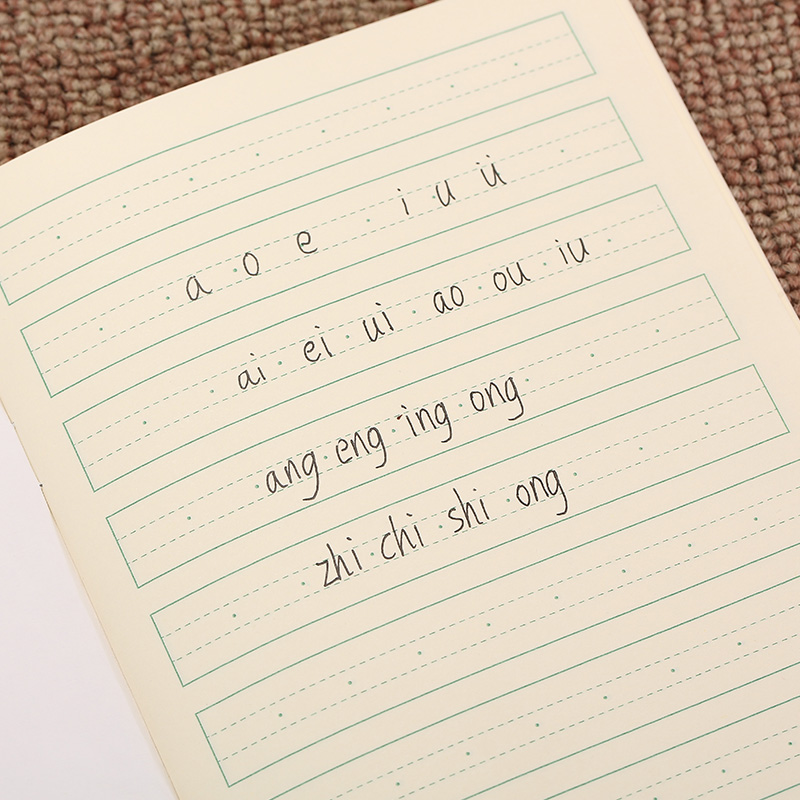 a o e i u ü
ai ei ui ao ou iu
ang eng ing ong
zhi chi shi ong